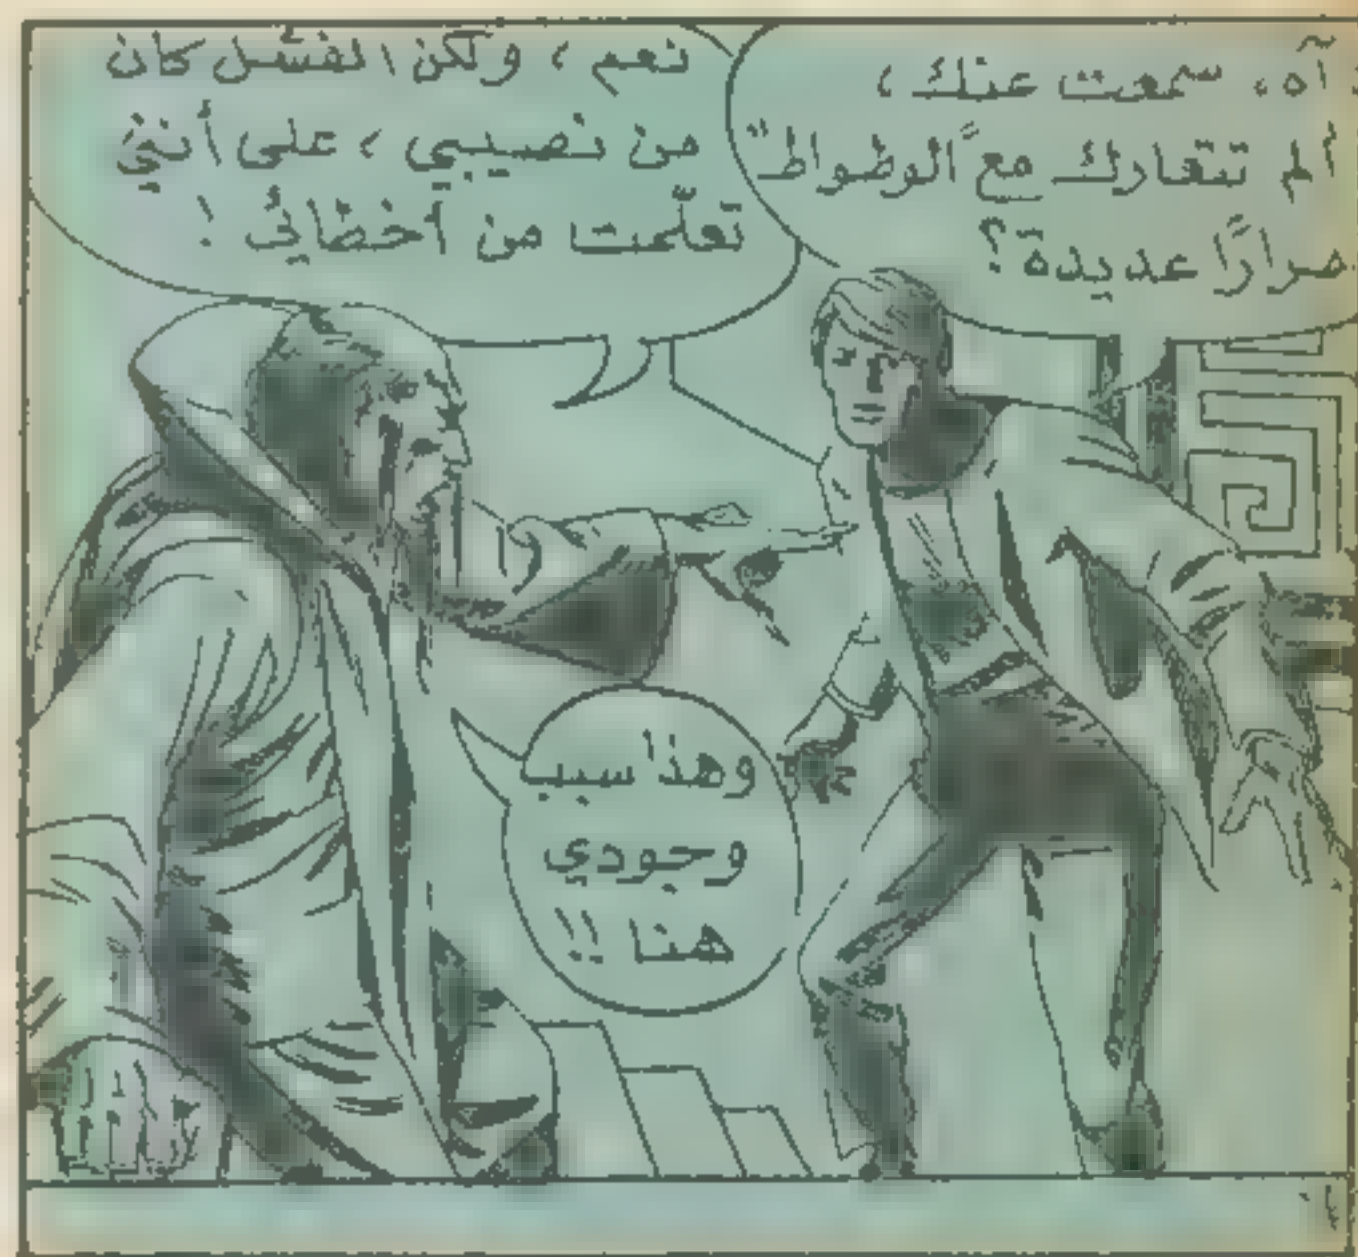 آه، سمعت عنك،
ألم تتعارك مع "الوطواط"
مرارًا عديدة؟
نعم، ولكن الفشل كان
من نصيبي، على أنني
تعلّمت من أخطائي!
وهذا سبب
وجودي
هنا!!